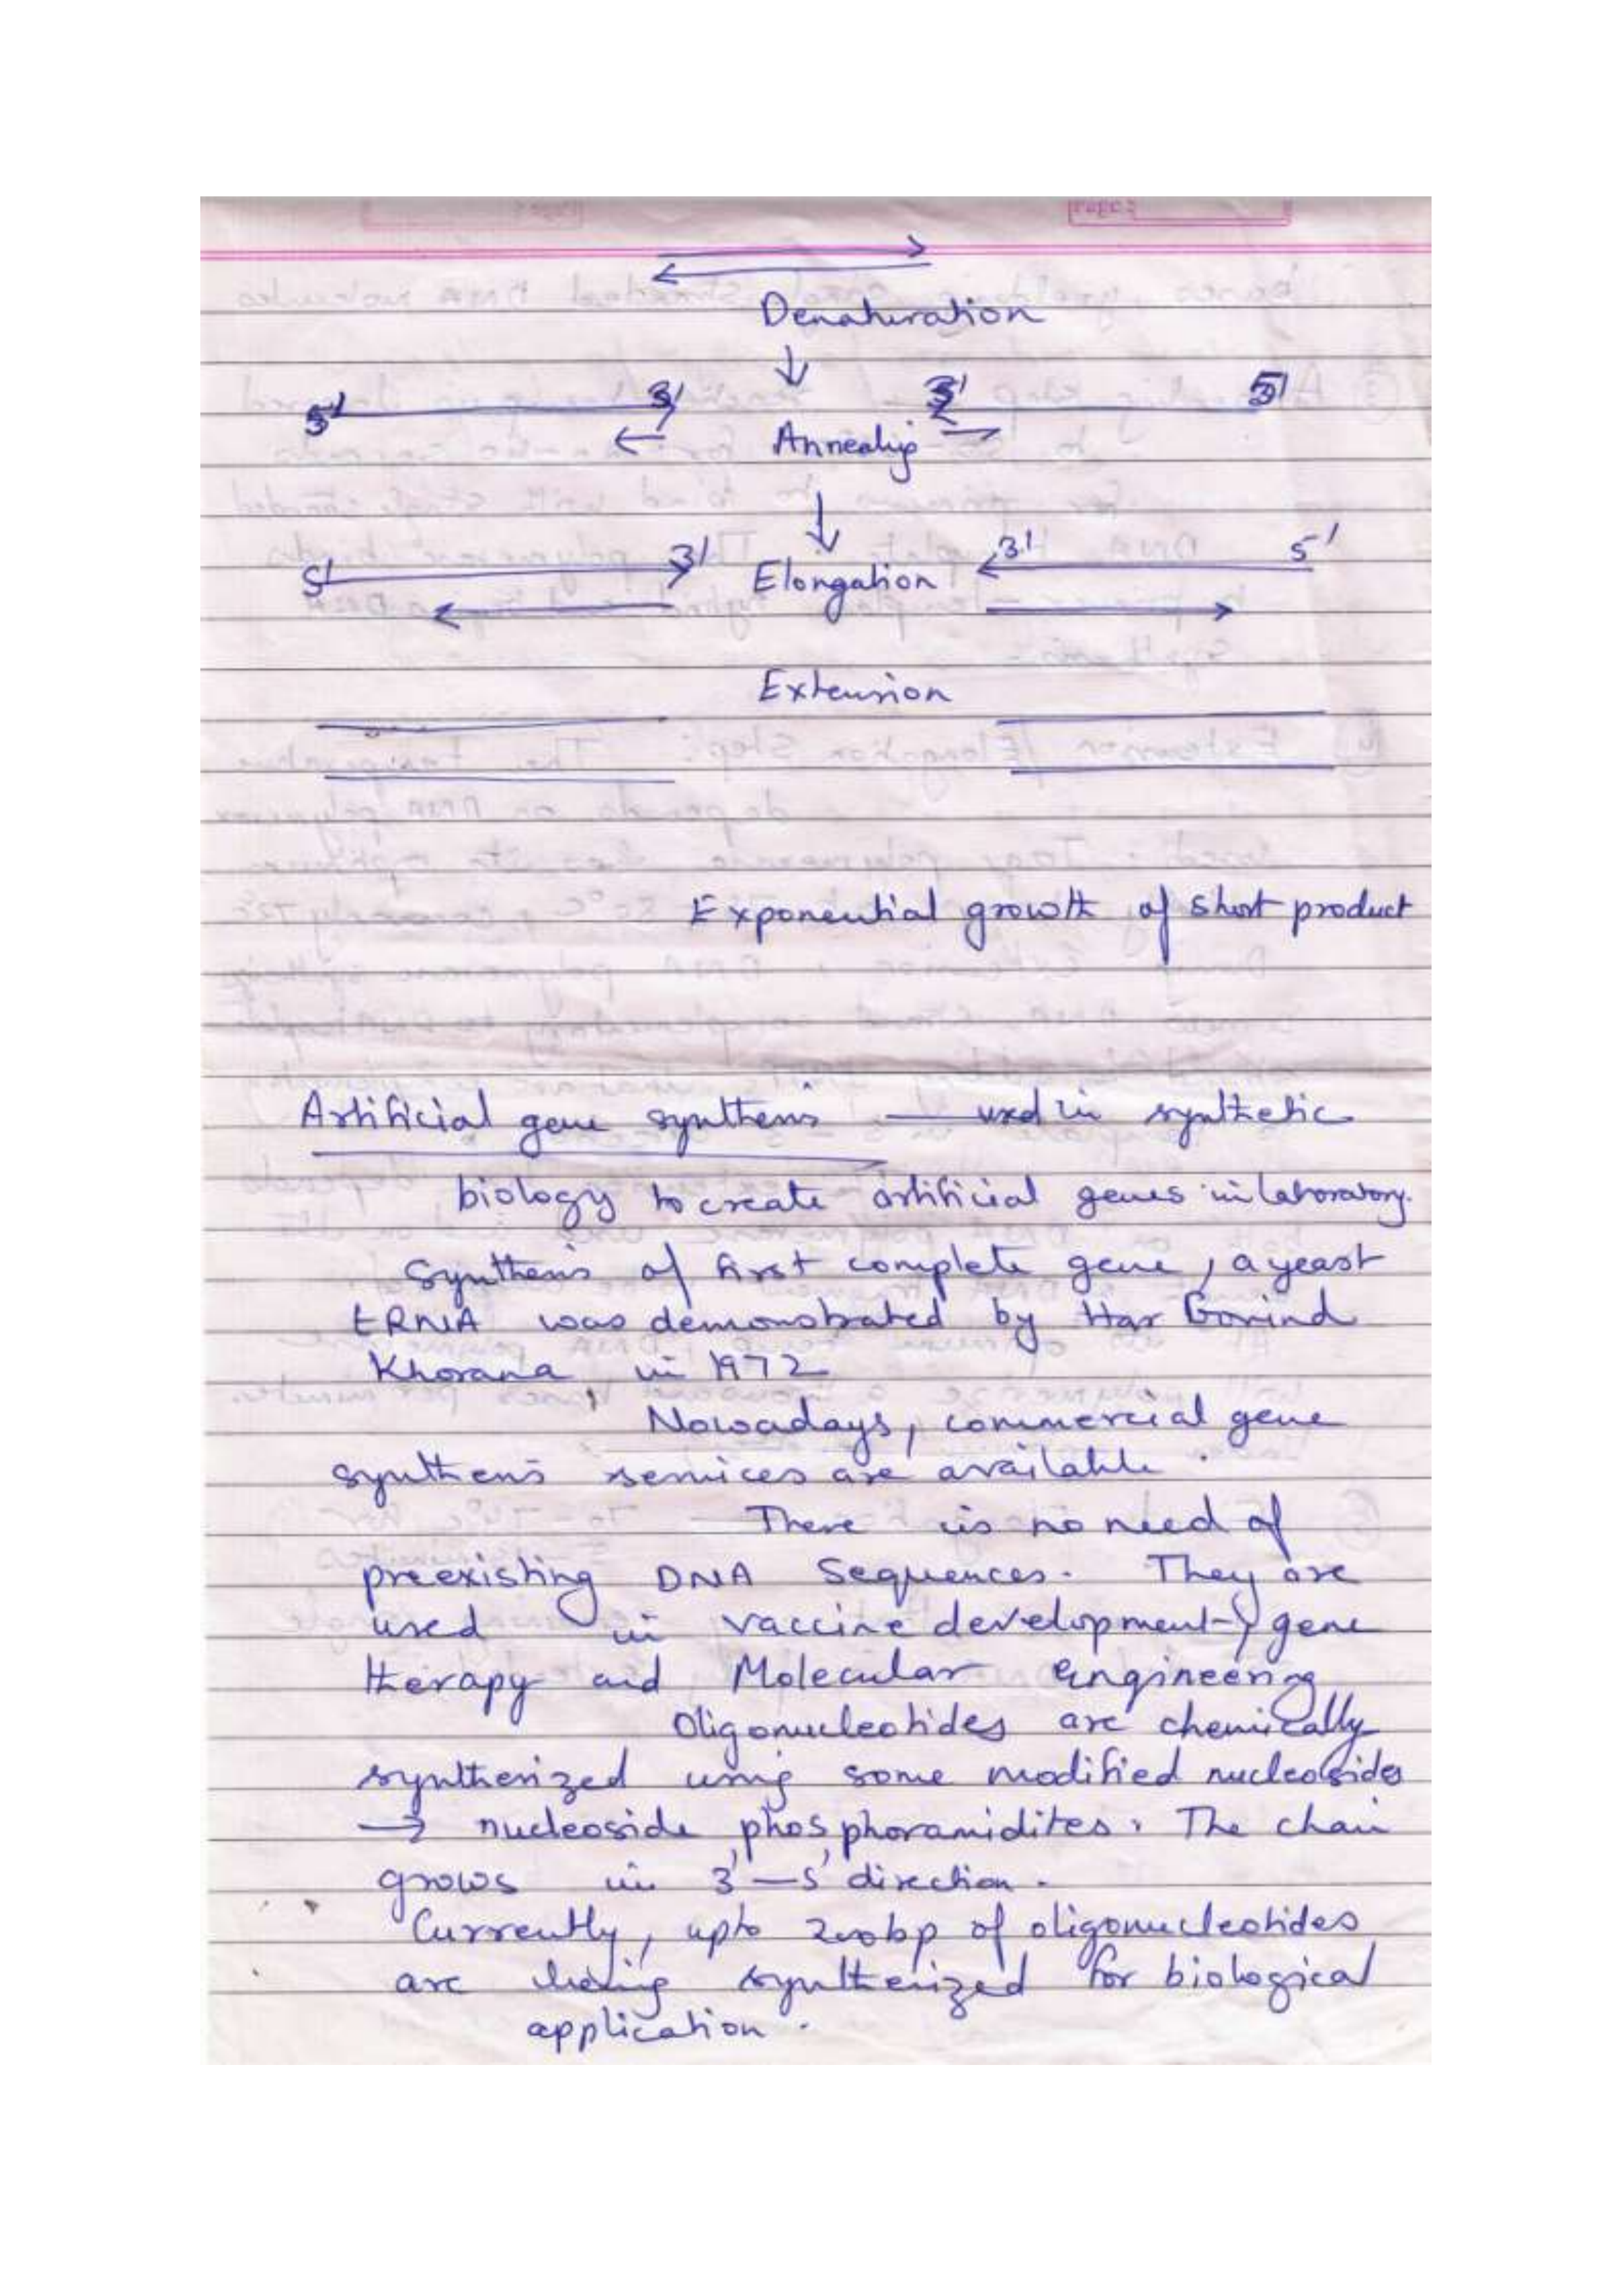 Denaturation
5' 3' 3' 5'
Annealing
5' 3' Elongation 3' 5'
Extension
Exponential growth of short product
Artificial gene synthesis — used in synthetic
biology to create artificial genes in laboratory.
Synthesis of first complete gene, a yeast
tRNA was demonstrated by Har Govind
Khorana in 1972
Nowadays, commercial gene
synthesis services are available.
There is no need of
preexisting DNA Sequences. They are
used in vaccine development, gene
therapy and Molecular engineering
Oligonucleotides are chemically
synthesized using some modified nucleosides
→ nucleoside phosphoramidites. The chain
grows in 3'—5' direction.
Currently, upto 200bp of oligonucleotides
are being synthesized for biological
application.